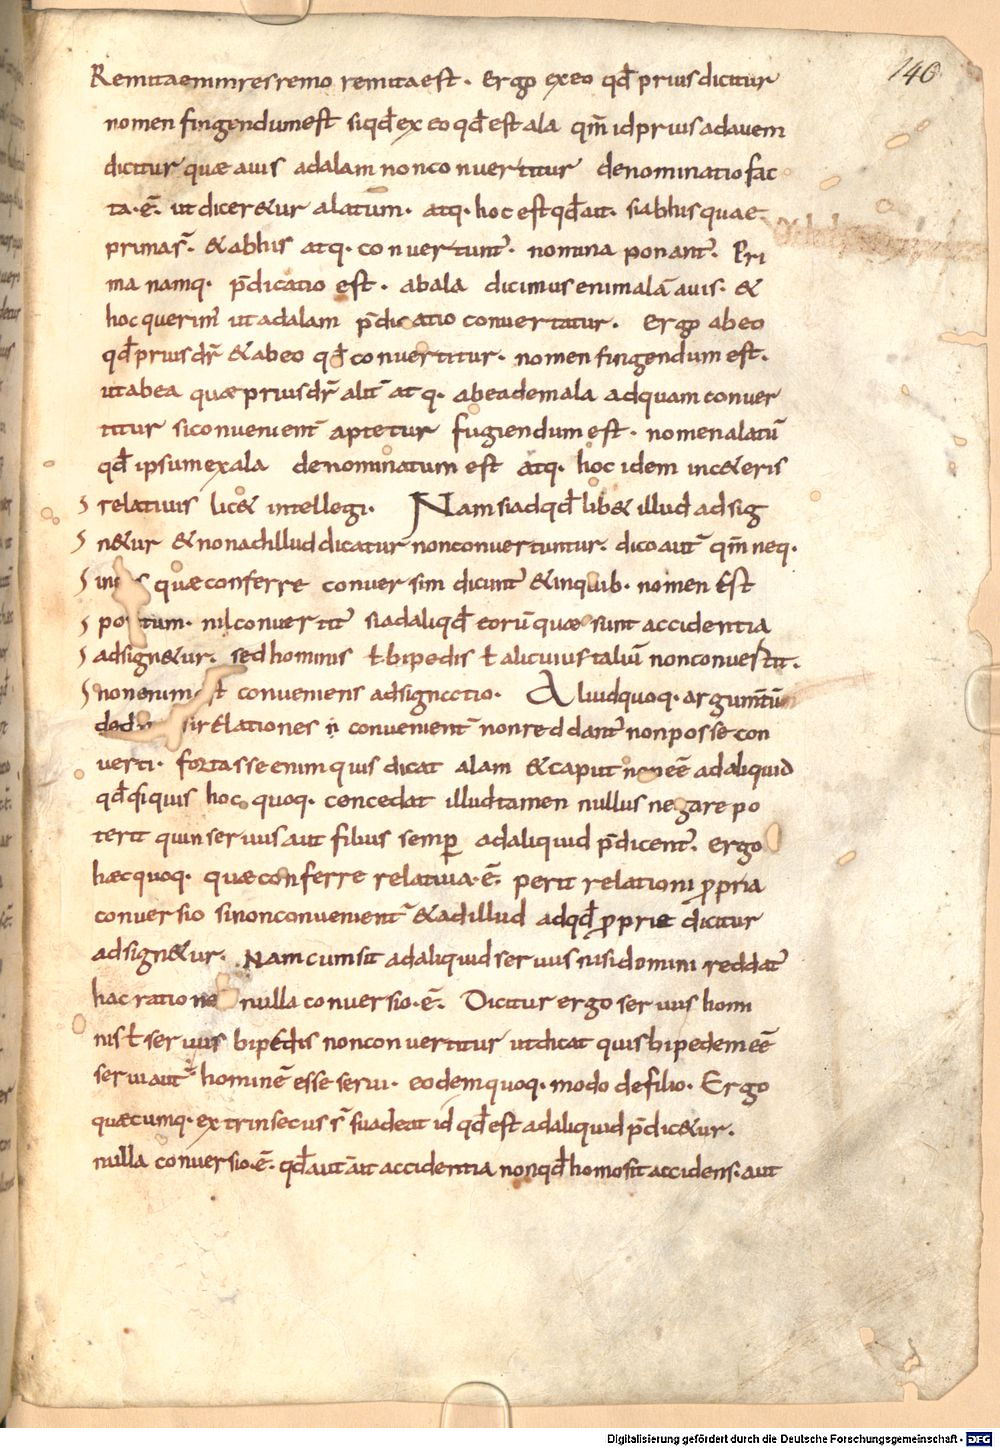 146
Remitaenimresremo remita est. Ergo ex eo qđ prius dicitur
nomen fingendum est siqđ ex eo qđ est ala qm̄ id prius ad avem
dicitur quae avis ad alam non convertitur denominatio fac
ta.ē. ut dicer&ur alatum. atq. hoc est qđ ait. si ab his quae
prima s̄. & ab his atq. convertunt̄. nomina ponant̄. Pri
ma namq. p̄dicatio est. ab ala dicimus enim alā avis. &
hoc querim̄ ut ad alam p̄dicatio convertatur. Ergo ab eo
qđ prius dr̄ & ab eo qđ convertitur. nomen fingendum est.
ut ab ea quae prius dr̄ alit̄ atq. ab eadem ala ad quam conver
titur si convenient̄ aptetur fugiendum est. nomen alatū
qđ ipsum ex ala denominatum est atq. hoc idem in c&eris
relativis lic& intellegi. Nam si ad qđ lib& illud adsig
n&ur & non ad illud dicatur non convertuntur. dico aut̄ qm̄ neq.
quae conferre conversim dicunt̄ & in quib. nomen Est
nil convertit̄ si ad aliqđ eorū quae sunt accidentia
adsign&ur. sed hominis ł bipedis ł alicuius taliū non convertit.
non enim conveniens adsignatio. Aliud quoq. argumt̄ū
si rElationes n̄ convenient̄ non reddant̄ non posse con
verti. fortasse enim quis dicat alam & caput non eē ad aliquid
qđ si quis hoc quoq. concedat illud tamen nullus negare po
terit quin servus aut filius semp̄ ad aliquid p̄dicent̄. Ergo
haec quoq. quae conferre relativa.ē. perit relationi p̄pria
conversio si non convenient̄ & ad illud ad qđ p̄prie dicitur
adsign&ur. Nam cum sit ad aliquid servus nisi domini reddat̄
hac ratione nulla conversio.ē. Dicitur ergo servus homi
nis ł servus bipEdis non convertitur ut dicat quis bipedem eē
servi aut̄ hominē esse servi. eodem quoq. modo de filio. Ergo
quaecumq. extrinsecus s̄ suadeat id qđ est ad aliquid p̄dic&ur.
nulla conversio.ē. qđ aut̄ ait accidentia non qđ homo sit accidens. aut
Digitalisierung gefördert durch die Deutsche Forschungsgemeinschaft - DFG